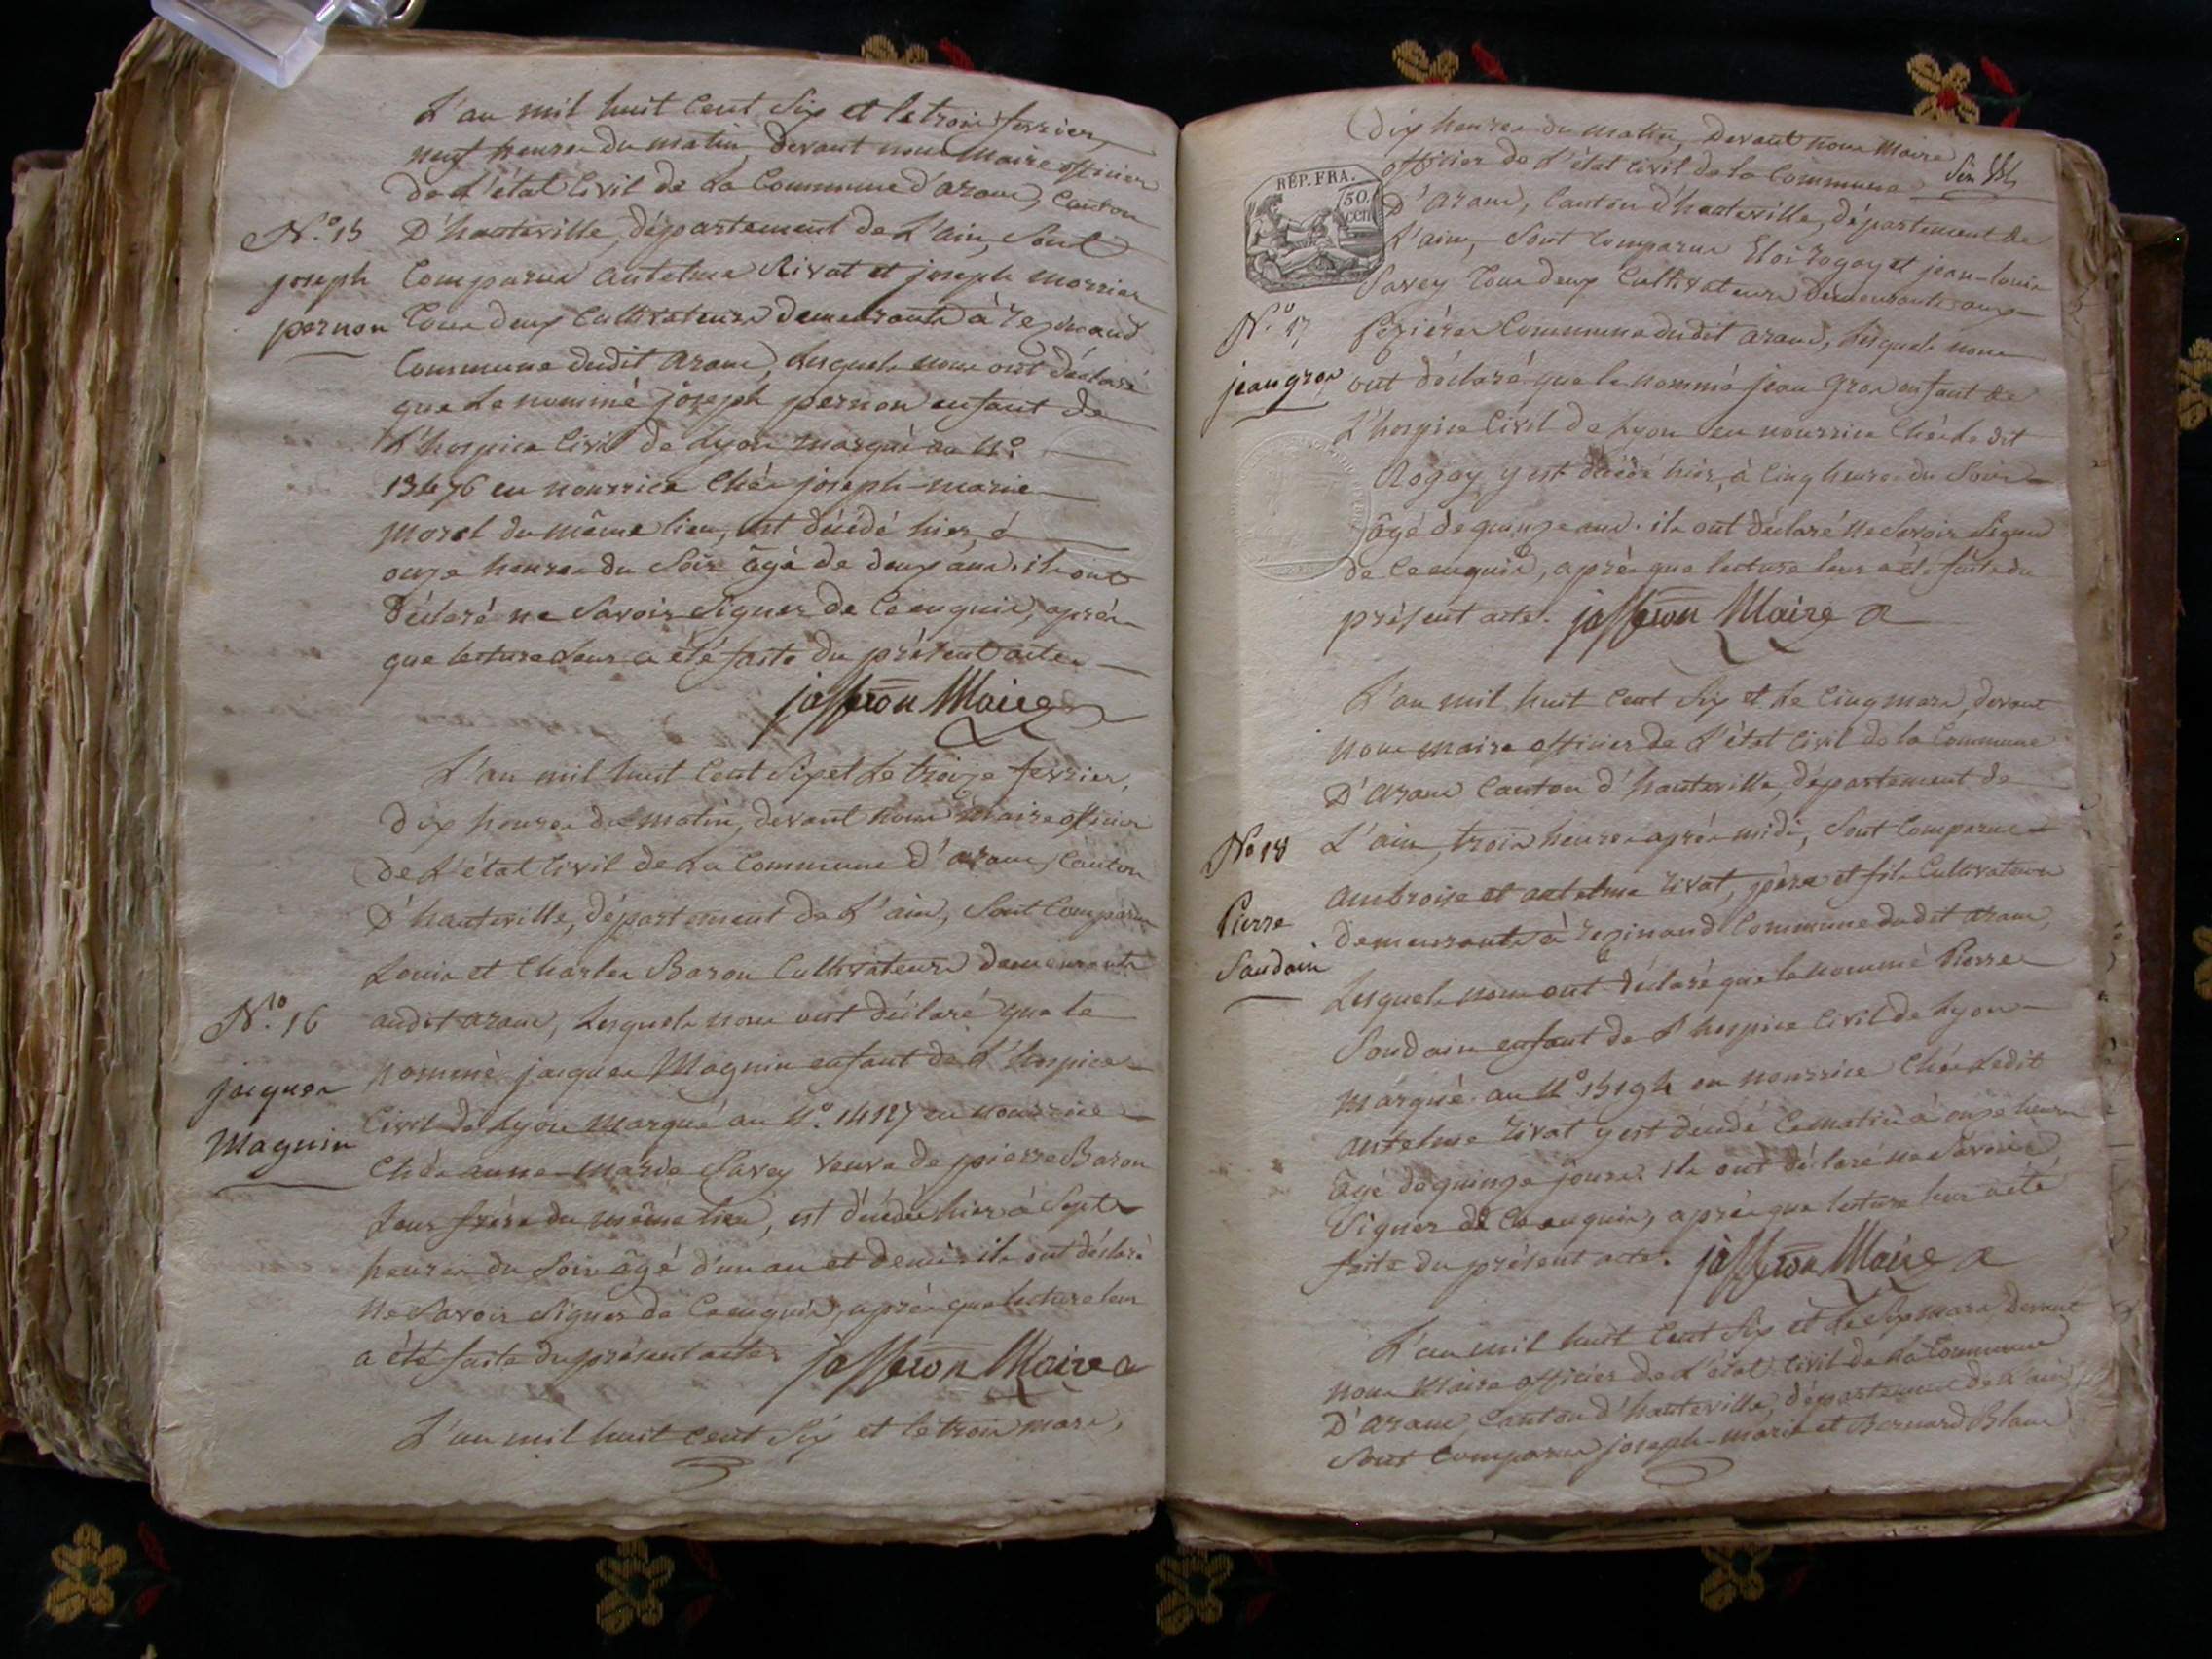 L'an mil huit Cent Six et le trois fevrier,
neuf heures du matin, devant nous Maire officier
de L'état Civil de La Commune d'aranc, Canton
N.o 15
D'hauteville, département de L'ain, Sont
joseph
Comparus antelme Rivat et joseph
pernon
tous deux Cultivateurs demeurants à rezinaud
Commune dudit aranc, Lesquels nous ont déclaré
que Le nommé joseph pernon enfant de
L'hospice Civil de Lyon marqué au N.o
13476 en nourrice Chés joseph-marie
morel du même lieu, est décédé hier, à
onze heures du Soir âgé de deux ans. ils ont
déclaré ne Savoir Signer de Ce enquis, après
que lecture leur a été faite du présent acte
jofferon Maire
L'an mil huit Cent Six et Le treize fevrier,
dix heures du matin, devant nous maire officier
de L'état Civil de La Commune d'aranc, Canton
D'hauteville, département de L'ain, Sont Comparus
Louis et Charles Baron Cultivateurs demeurants
N.o 16
audit aranc, Lesquels nous ont déclaré que Le
jacques
nommé jacques Magnin enfant de L'hospice
Magnin
Civil de Lyon marqué au N.o 14127 en nourrice
Chés anne-marie Savey veuve de pierre Baron
Leur frère du même lieu, est décédé hier à Sept
heures du Soir âgé d'un an et demi. ils ont déclaré
ne Savoir Signer de Ce enquis, après que lecture leur
a été faite du présent acte. jofferon Maire
L'an mil huit Cent Six et le trois mars,
Dix heures du matin, Devant nous Maire
officier de L'état Civil de la Commune
REP. FRA.
50. cen
D'aranc, Canton d'hauteville, département de
L'ain, Sont Comparus Eloi rogay et jean-louis
Savey tous deux Cultivateurs Demeurants aux
N.o 17
Commune dudit aranc, Lesquels nous
jean gros
ont déclaré que le nommé jean gros enfant de
L'hospice Civil de Lyon en nourrice Chés le dit
Rogay y est décédé hier, à Cinq heures du Soir
âgé de quinze ans. ils ont déclaré ne Savoir Signer
de Ce enquis, après que lecture leur a été faite du
présent acte. jofferon Maire
L'an mil huit Cent Six et Le Cinq mars, devant
nous maire officier de L'état Civil de la Commune
D'aranc Canton d'hauteville, département de
No 18
L'ain, trois heures après midi, Sont Comparus
Pierre
ambroise et antelme rivat, père et fils Cultivateurs
Soudain
demeurants à rezinaud Commune dudit aranc,
Lesquels nous ont déclaré que le nommé Pierre
Soudain enfant de L'hospice Civil de Lyon
marqué au N.o 15194 en nourrice Chés Ledit
antelme rivat y est décédé Ce matin à onze heures
âgé de quinze jours. ils ont déclaré ne Savoir
Signer de Ce enquis, après que lecture leur a été
faite du présent acte. jofferon Maire
L'an mil huit Cent Six et Le Six mars, Devant
nous Maire officier de L'état Civil de La Commune
D'aranc, Canton d'hauteville, département de L'ain
Sont Comparus joseph-marie et Bernard Blanc